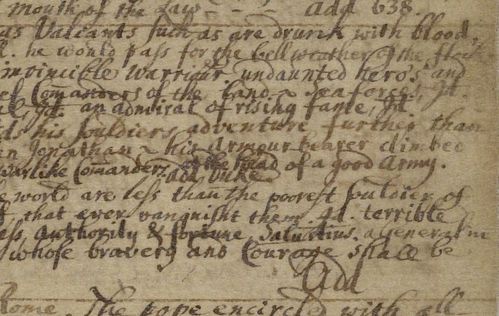 mouth of the Law - - Add 638.
as Valiants such as are drunk with blood,
he would pass for the bellweather of the flock
invincible Warriour undaunted hero's and
Comanders of the Land & Sea forces, Id.
Id. an admiral of rising fame, Id.
his souldiers adventure further than
Jonathan & his Armour bearer climbed
warlike Comanders at the head of a good Army.
add Duke
world are less than the poorest souldier of
that ever vanquisht them. Id. terrible
Authority & fortune. Salustius. a general in
whose bravery and Courage shall be
Add
Rome. The pope encircled with all